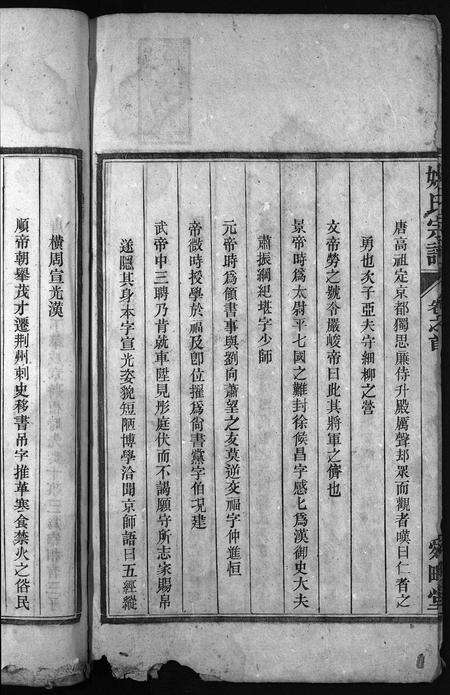 氏宗譜 卷之首
唐高祖定京都獨思廉侍升殿厲聲却眾而觀者嘆曰仁者之
勇也次子亞夫守細柳之營
文帝勞之號令嚴峻帝曰此其將軍之儕也
景帝時爲太尉平七國之難封徐候昌字感七爲漢御史大夫
肅振綱紀堪字少師
元帝時爲領書事與劉向蕭望之友莫逆交福字仲進恒
帝微時授學於福及卽位擢爲尚書黨字伯况建
武帝中三聘乃肯就車陞見彤庭伏而不謁願守所志家賜帛
遂隱其身本字宣光姿貌短陋博學洽聞京師語曰五經縱
橫周宣光漢
順帝朝舉茂才遷荆州刺史移書吊字推革寒食禁火之俗民